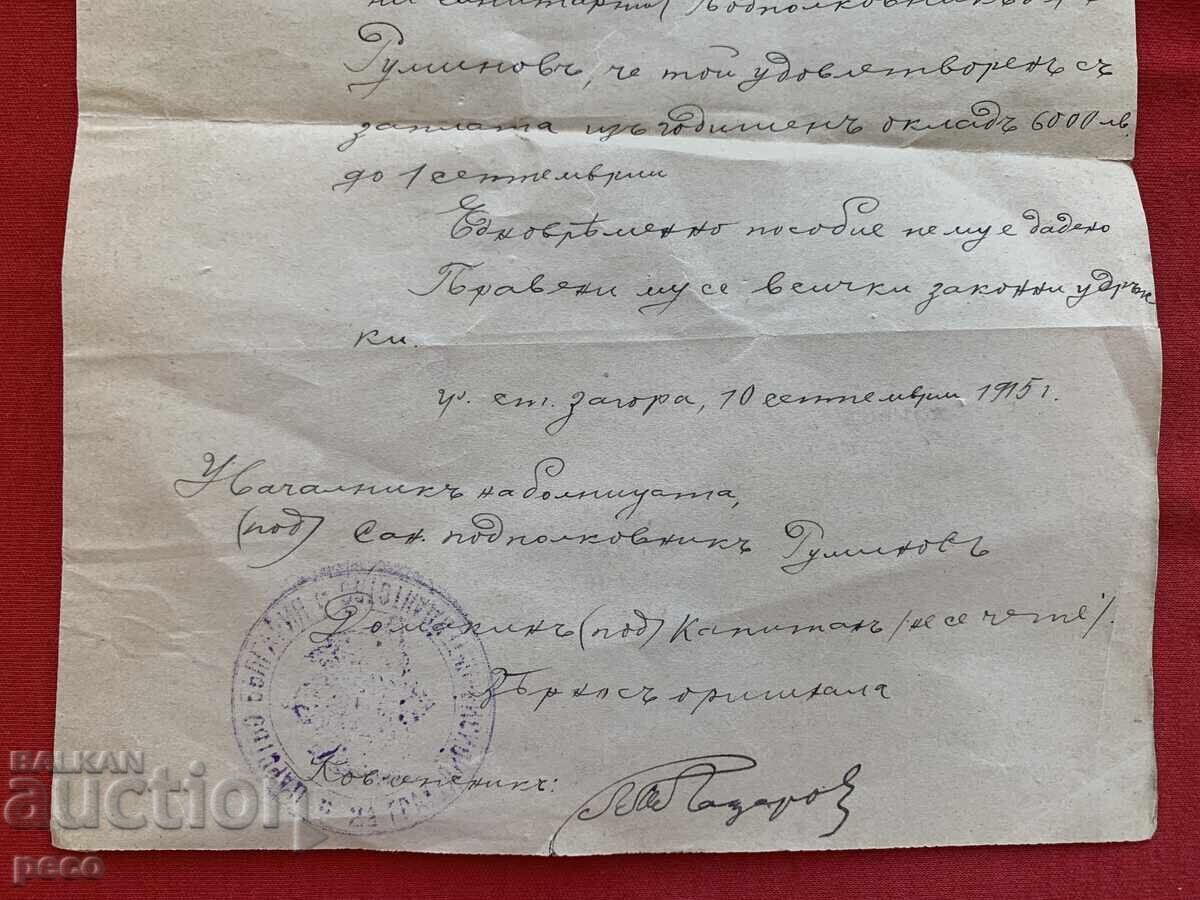 на санитарния подполковникъ
Руминовъ, че той удовлетворенъ съ
заплата изъ годишенъ окладъ 6000 лв.
до 1 септемврии
Едноврѣменно пособие не му е дадено
Правени му се всички законни удръж
ки.
гр. ст. Загора, 10 септемврии 1915 г.
Началникъ на болницата,
(под) Сан. подполковникъ Руминовъ
Домакинъ (под) Капитанъ /не се чете/.
Вѣрно съ оригинала
ЦАРСТВО БЪЛГАРИЯ
BALKAN
auction
peco